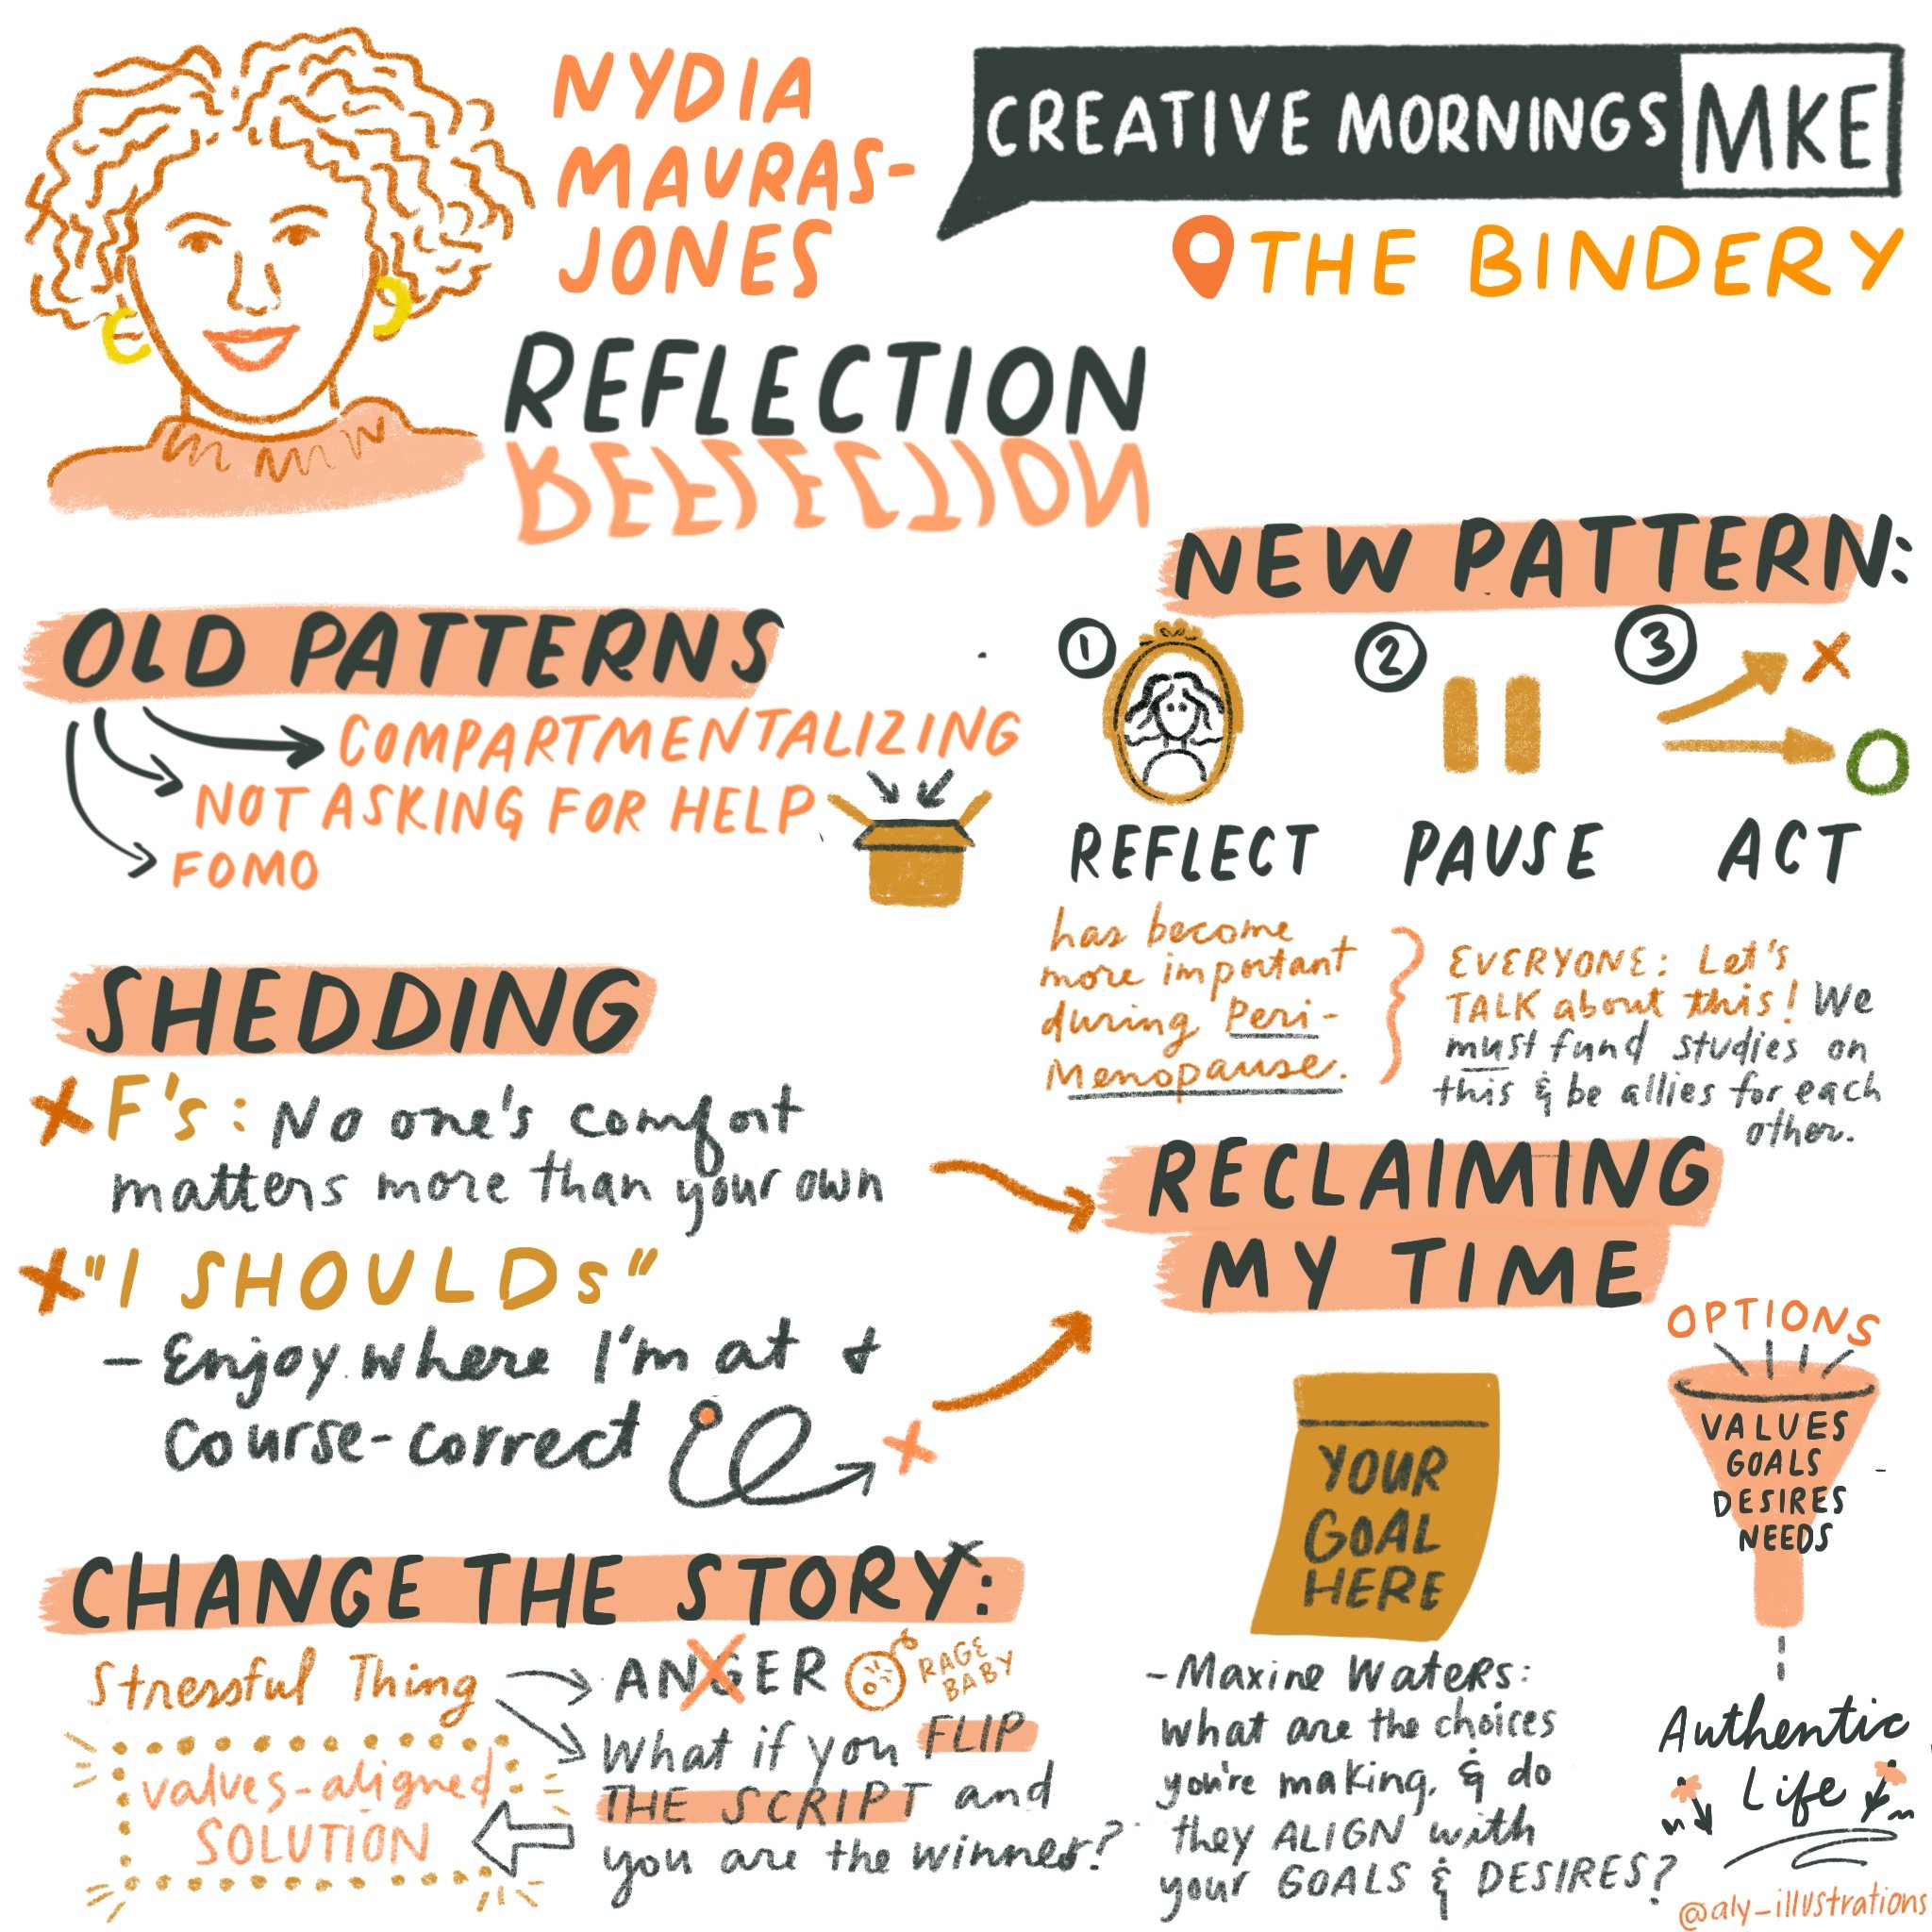 NYDIA
MAURAS-
JONES
CREATIVE MORNINGS MKE
THE BINDERY
REFLECTION
REFLECTION
OLD PATTERNS
COMPARTMENTALIZING
NOT ASKING FOR HELP
FOMO
NEW PATTERN:
1 2 3
REFLECT PAUSE ACT
has become
more important
during Peri-
Menopause.
EVERYONE: Let's
TALK about this! We
must fund studies on
this & be allies for each
other.
SHEDDING
x F's: No one's comfort
matters more than your own
x "I SHOULDs"
- Enjoy where I'm at +
course-correct
RECLAIMING
MY TIME
YOUR
GOAL
HERE
- Maxine Waters:
what are the choices
you're making, & do
they ALIGN with
your GOALS & DESIRES?
OPTIONS
VALUES
GOALS
DESIRES
NEEDS
Authentic
Life
CHANGE THE STORY:
Stressful Thing
ANGER
RAGE
BABY
What if you FLIP
THE SCRIPT and
you are the winner?
values-aligned
SOLUTION
@aly_illustrations